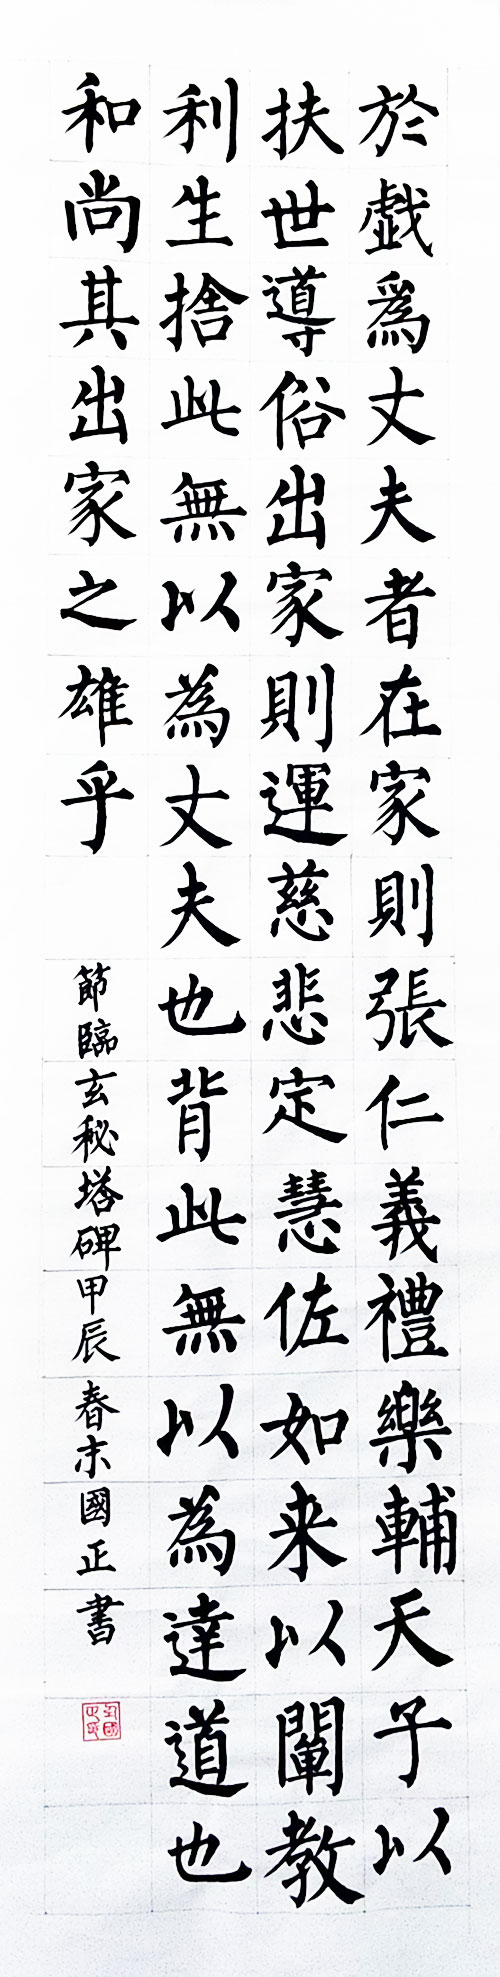 於戲爲丈夫者在家則張仁義禮樂輔天子以
扶世導俗出家則運慈悲定慧佐如来以闡教
利生捨此無以為丈夫也背此無以為達道也
和尚其出家之雄乎
節臨玄秘塔碑甲辰春末國正書